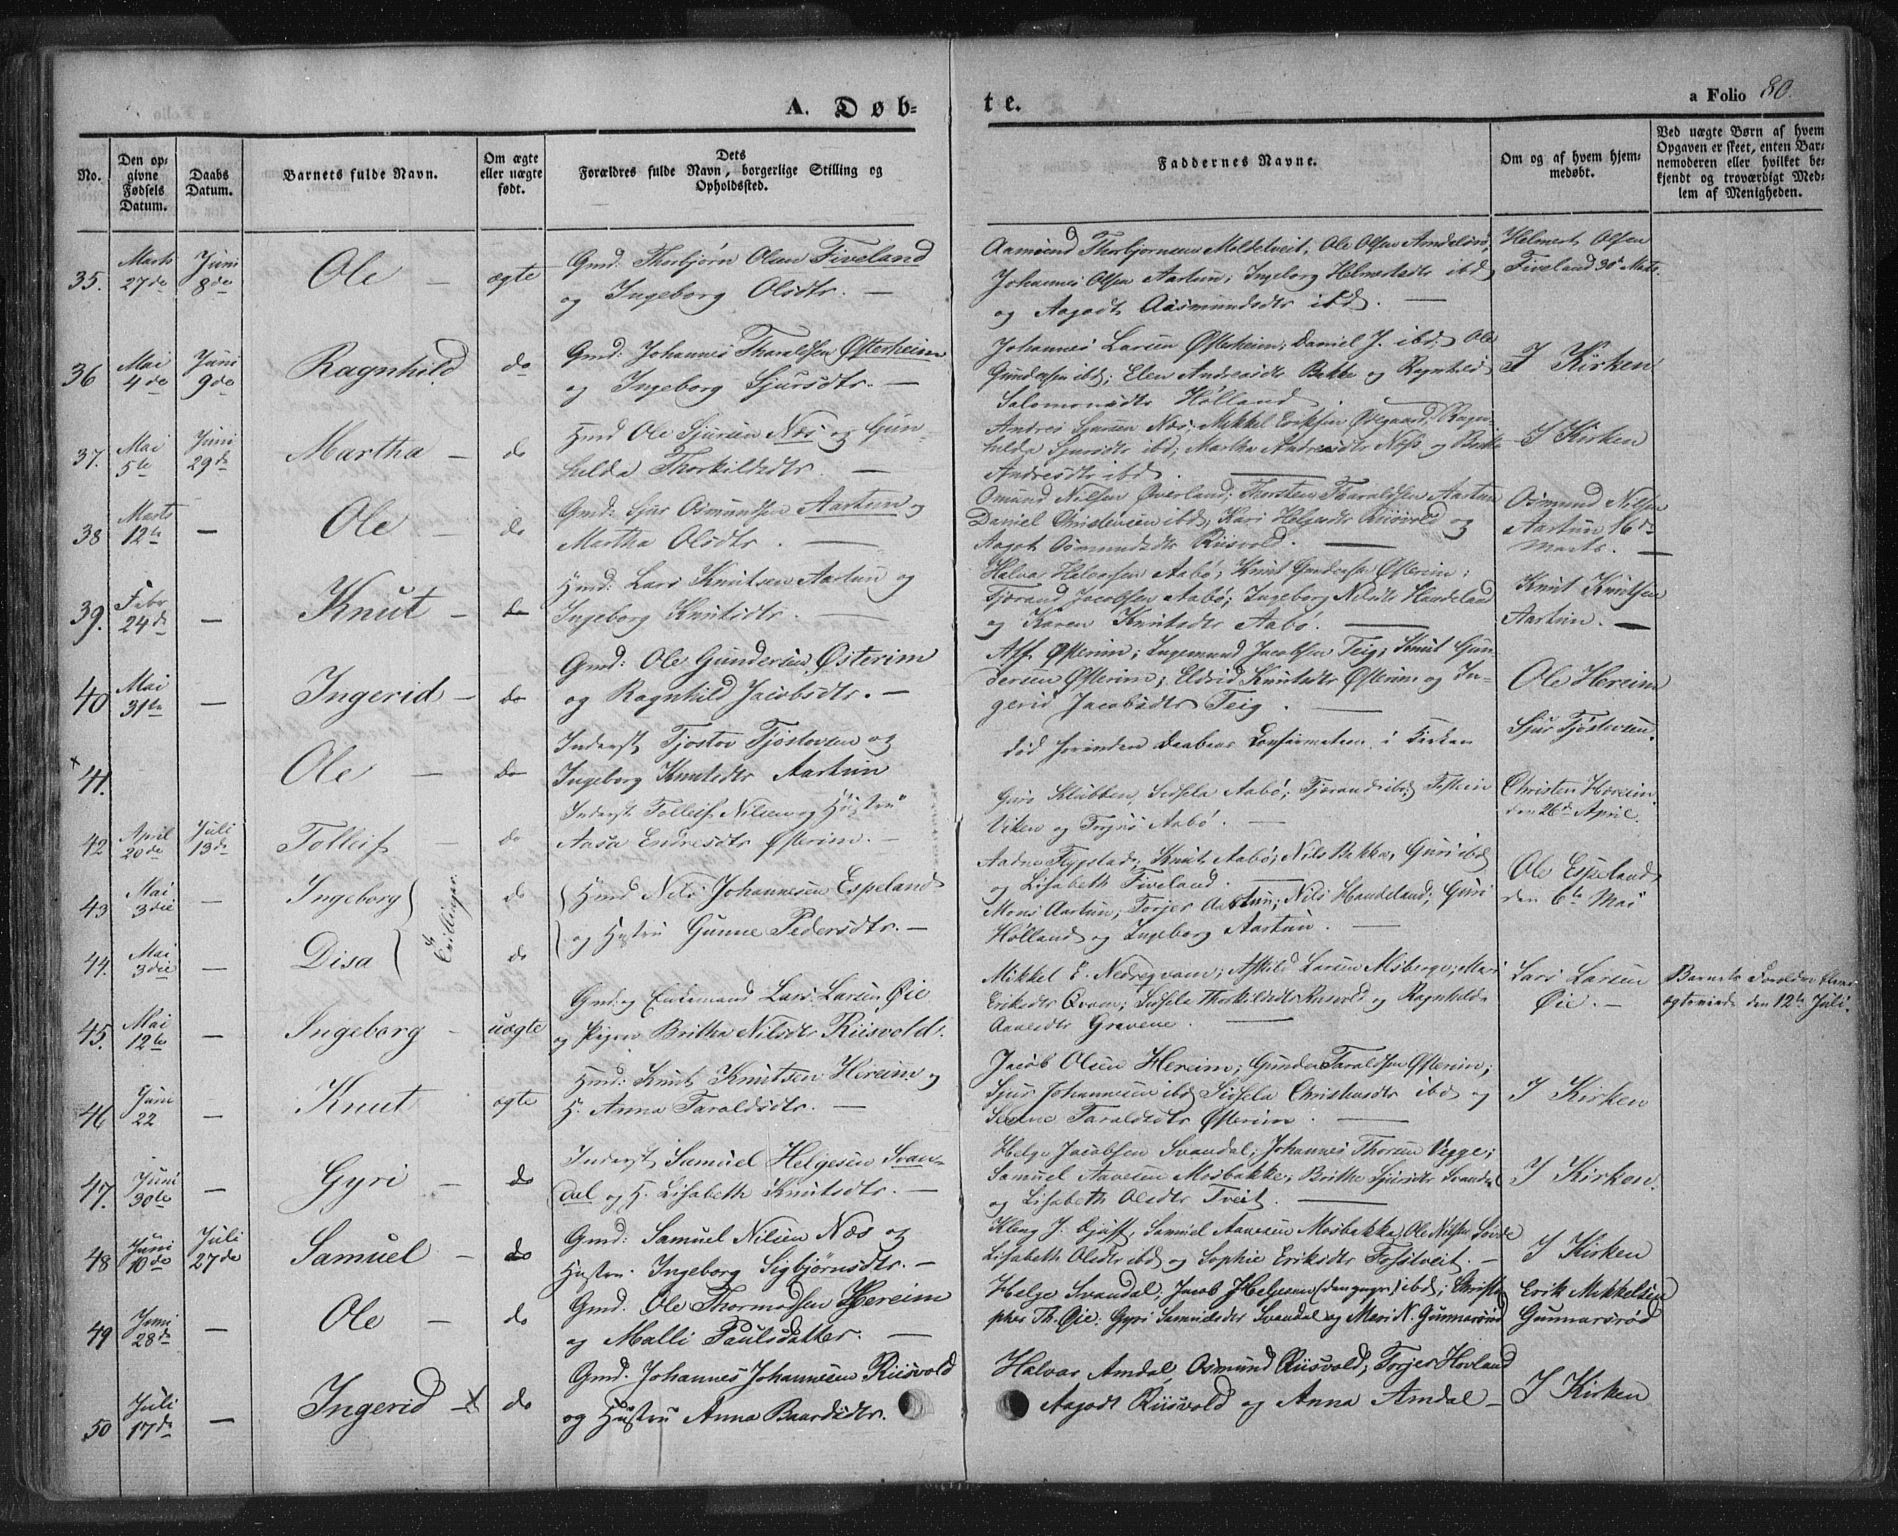 A. Døb-
te.
a Folio 80.
No.
Den op-
givne
Fødsels
Datum.
Daabs
Datum.
Barnets fulde Navn.
Om ægte
eller uægte
født.
Dets
Forældres fulde Navn, borgerlige Stilling og
Opholdssted.
Faddernes Navne.
Om og af hvem hjem-
medøbt.
Ved uægte Børn af hvem
Opgaven er skeet, enten Bar-
nemoderen eller hvilket be-
kjendt og troværdigt Med-
lem af Menigheden.
35.
Marts
27de
Juni
8de
Ole —
ægte
Gmd: Thorbjørn Olsen Fiveland
og Ingeborg Olsdtr. —
Aamund Thorbjørnsen Moldetveit; Ole Olsen
Johannes Olsen Aartun; Ingeborg Helmersdtr ibd
og Aagodt Aasmundsdtr ibd. —
Helmert Olsen
Fiveland 30te Marts
36
Mai
4de
Juni
9de
Ragnhild
do
Gmd: Johannes Tharaldsen Østerheim
og Ingeborg Sjursdtr. —
Johannes Larsen Østerheim; Daniel J. ibd; Ole
Gundersen ibd; Elen Andreasdtr Bakke og Ragnhild
Salomonsdtr Holland
I Kirken
37.
Mai
5te
Juni
29de
Martha —
do
Hmd Ole Sjursen Næs og Gun-
helda Thorkildsdtr. —
Andres Sjursen Næs; Mikkel Eriksen Øvegaard; Ragn-
helda Sjursdtr ibd; Martha Andreasdtr Næss og Britha
Andresdtr ibd. —
I Kirken
38
Marts
12te
—
Ole —
do
Gmd: Sjur Osmundsen Aartun og
Martha Olsdtr. —
Omund Nilsen Øverland; Thorsten Tharaldsen Aartun
Daniel Christensen ibd, Kari Helgesdtr Riisvold og
Aagot Osmundsdtr Riisvold. —
Osmund Nilsen
Aartun 16de
Marts. —
39.
Febr
24de
—
Knut —
do
Hmd: Lars Knutsen Aartun og
Ingeborg Knutsdtr. —
Halvar Halvorsen Aabø; Knut Gundersen Østerim;
Tjerand Jacobsen Aabø; Ingeborg Nilsdtr Handeland
og Karen Knutsdtr Aabø. —
Knut Knutsen
Aartun. —
40
Mai
31te
—
Ingerid —
do
Gmd: Ole Gundersen Østerim
og Ragnhild Jacobsdtr. —
Alf Østerim; Ingemund Jacobsen Teig; Knut Gun-
dersen Østerim; Eldrid Knutsdtr Østerim og In-
gerid Jacobsdtr Teig. —
Ole Hereim
× 41.
Ole —
do
Inderst Tjostov Tjostovsen og
Ingeborg Knutsdtr Aartun
død forinden Daabens Confirmation i Kirken
Sjur Tjostovsen.
42
April
20de
Juli
13de
Tolleif —
do
Inderst Tolleif Nilsen og Hustru
Aasa Endresdtr Østerim. —
Guro Klubben, Sidsela Aabø; Tjerand ibd; Tostein
Viken og Torjus Aabø. —
Christen Hereim.
den 26de April.
43
Mai
3die
—
Ingeborg
Tvillinger
do
Hmd Nils Johannesen Espeland
Aadne Tysstad; Knut Aabø; Nils Bakka, Guri ibd
og Lisabeth Fiveland. —
Ole Espeland
den 6te Mai
44.
Mai
3die
—
Disa
do
og Hustru Gunne Pedersdtr. —
Mons Aartun; Torjer Aartun; Nils Handeland; Guri
Holland og Ingeborg Aartun. —
45.
Mai
12te
—
Ingeborg —
uægte
Gmd og Enkemand Lars Larsen Øie
og Pigen Britha Nilsdtr Riisvold.
Mikkel E. Nedreqvam; Askild Larsen Mosberge; Mari
Eriksdtr Qvam; Sidsela Thorkildsdtr Riisvold og Ragnhilda
Aanesdtr Gravene. —
Lars Larsen
Øie. —
Barnets Forældre
ægteviede den 12te Juli.
46
Juni
22
—
Knut
ægte
Hmd: Knut Knutsen Hereim og
H. Anna Taraldsdtr. —
Jacob Olsen Hereim; Gunder Taraldsen Østerim;
Sjur Johannesen ibd Sidsela Christensdtr ibd og
Serine Taraldsdtr Østerim. —
I Kirken
47.
Juni
30te
—
Gyri —
do
Inderst Samuel Helgesen Svan-
dal og H. Lisabeth Knutsdtr. —
Helge Jacobsen Svandal; Johannes Thorsen Vegge;
Samuel Aanesen Mosbakke; Britha Sjursdtr Svandal
og Lisabeth Olsdtr Tveit. —
I Kirken.
48
Juni
10de
Juli
27de
Samuel —
do
Gmd: Samuel Nilsen Næs og
Hustru. Ingeborg Sigbjørnsdtr. —
Kleng J. Samuel Aanesen Mosbakka, Ole Nilsen
Lisabeth Olsdtr ibd og Sophie Eriksdtr Fosstveit. —
I Kirken
49
Juni
28de
—
Ole —
do
Gmd. Ole Thormodsen Hereim
og Malli Paulsdatter. —
Helge Svandal; Jacob Helgesen (den yngre) ibd; Christo-
pher Th. Øie. Gyri Samuelsdtr Svandal og Mari N. Gunnarsrød
Erik Mikkelsen
Gunnarsrød
50
Juli
17de
—
Ingerid —×
do
Gmd. Johannes Johannesen Riisvold
og Hustru Anna Baardsdtr.
Halvar Amdal, Osmund Riisvold; Torjer Hovland
Aagodt Riisvold og Anna Amdal —
I Kirken